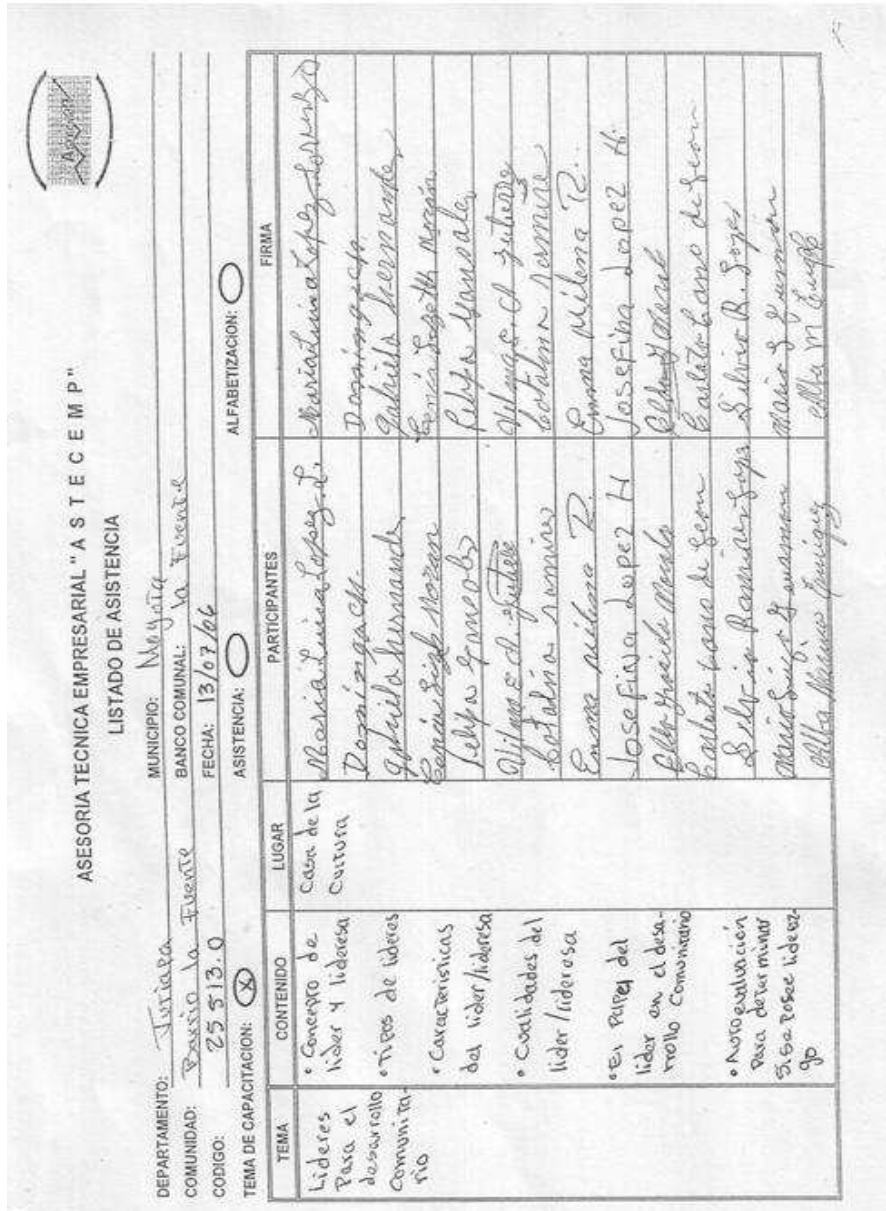 ASTECEMP
ASESORIA TECNICA EMPRESARIAL " A S T E C E M P "
LISTADO DE ASISTENCIA
DEPARTAMENTO: Jutiapa MUNICIPIO: Moyuta
COMUNIDAD: Barrio la Fuente BANCO COMUNAL: la Fuente
CODIGO: 25 513.0 FECHA: 13/07/06
TEMA DE CAPACITACION: X ASISTENCIA: ALFABETIZACION:
TEMA CONTENIDO LUGAR PARTICIPANTES FIRMA
Lideres
Para el
desarrollo
Comunita-
rio
• Concepto de
lider y lideresa
• Tipos de lideres
• Caracteristicas
del lider/lideresa
• Cualidades del
lider/lideresa
• El Papel del
lider en el desa-
rrollo Comunitario
• Autoevaluación
Para determinar
Si se Posee lideraz-
go
Casa de la
Cultura
Maria Luisa Lopez L. Maria Luisa Lopez Lorenzo
Dominga Dominga
Gabriela Hernandez Gabriela Hernandez
Morán Lizeth Morán
Felipa Gonzales Felipa Gonsales
Vilma
Catalina Ramires Catalina Ramire
Emma Milena R. Emma Milena R.
Josefina Lopez H Josefina Lopez H.
Carlota Cano de Leon Carlota Cano de Leon
Silvia Ramirez Silvia R.
Mario Guzman
Alba Alba M